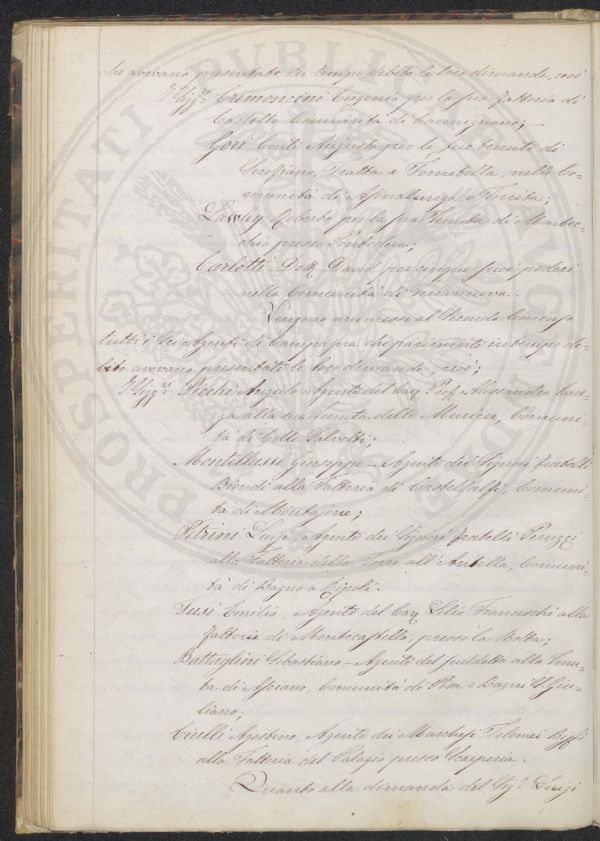 che avevano presentate in tempo debito le loro dimande, cioè
I Sigg.ri Cremoncini Eugenio per la sua fattoria di
Castello Comunità di Carmignano;
Gori Conte Augusto per le sue tenute di
Tratta e Fornebella, nelle Co-
munità di Asinalunga e Torrita;
Lawley Roberto per la sua Tenuta di Montec-
chio presso Pontedera;
Carlotti Dott. David per cinque suoi poderi
nella Comunità di Terranuova.
Vengono ammessi al Secondo Concorso
tutti i Sei Agenti di Campagna che parimente in tempo de-
bito avevano presentate le loro dimande, cioè;
I Sigg.ri Picchi Angiolo Agente del Cav. Prof. Alessandro
alla sua tenuta delle Muricce, Comuni-
tà di Colle Salvetti;
Montelbassi Giuseppe – Agente dei Signori fratelli
Biondi alla Fattoria di Castelfalfi, Comuni-
tà di Montajone;
Petrini Luigi, Agente dei Signori fratelli Peruzzi
alla Fattoria della Torre all'Antella, Comuni-
tà di Bagno a Ripoli.
Susi Emilio, Agente del Cav. Lelio Franceschi alla
fattoria di Montecastello, presso la Rotta;
Battaglini Sebastiano – Agente del suddetto alla Tenu-
ta di Asciano, Comunità di Pisa e Bagni S. Giu-
liano;
Ciulli Agostino, Agente dei Marchesi Tolomei Biffi
alla Fattoria del Palagio presso Scarperia.
Quanto alla dimanda del Sig.r Luigi
PROSPERITATI PUBLICAE AUGENDAE